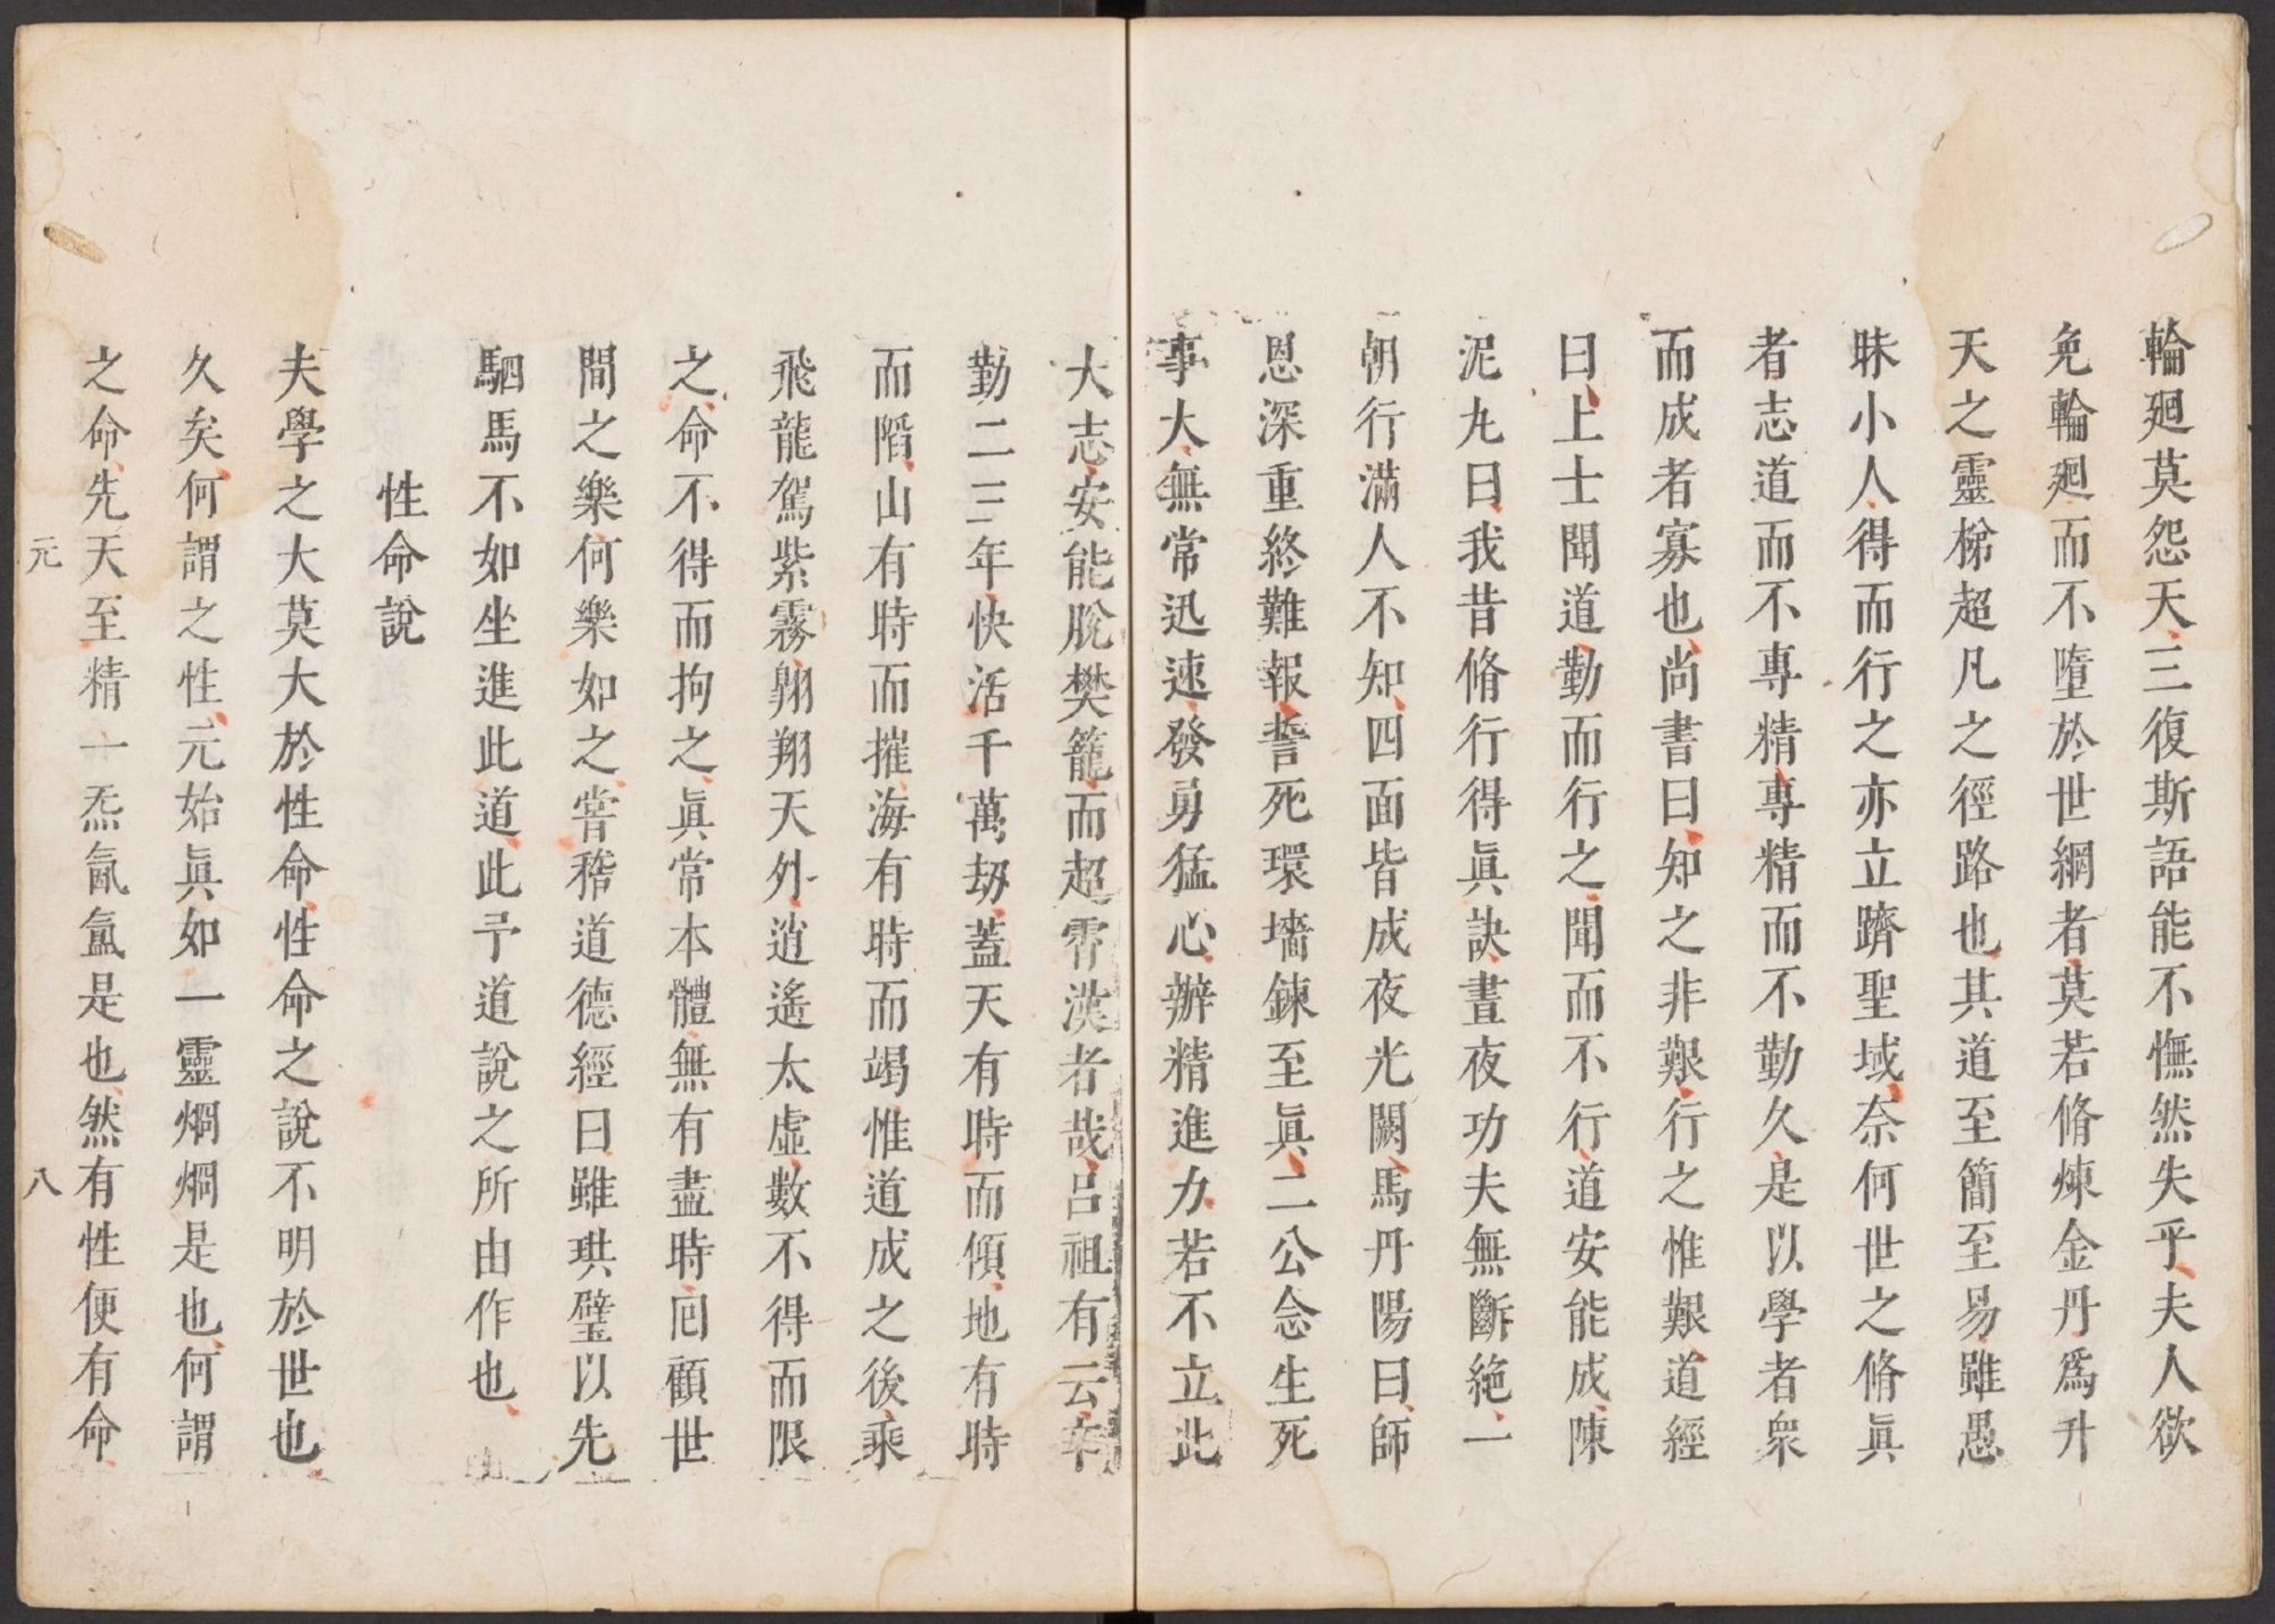 輪廻莫怨天三復斯語能不憮然失乎夫人欲
免輪廻而不墮於世網者莫若脩煉金丹爲升
天之靈梯超凡之徑路也其道至簡至易雖愚
昧小人得而行之亦立躋聖域奈何世之脩眞
者志道而不專精專精而不勤久是以學者衆
而成者寡也尚書曰知之非艱行之惟艱道經
曰上士聞道勤而行之聞而不行道安能成陳
泥丸曰我昔脩行得眞訣晝夜功夫無斷絶一
朝行滿人不知四面皆成夜光闕馬丹陽曰師
恩深重終難報誓死環墻鍊至眞二公念生死
事大無常迅速發勇猛心辦精進力若不立此
大志安能脫樊籠而超霄漢者哉吕祖有云辛
勤二三年快活千萬劫蓋天有時而傾地有時
而陷山有時而摧海有時而竭惟道成之後乘
飛龍駕紫霧翱翔天外逍遙太虛數不得而限
之命不得而拘之眞常本體無有盡時囘顧世
間之樂何樂如之嘗稽道德經曰雖珙璧以先
駟馬不如坐進此道此予道說之所由作也
性命說
夫學之大莫大於性命性命之說不明於世也
久矣何謂之性元始眞如一靈炯炯是也何謂
之命先天至精一炁氤氳是也然有性便有命
元 八